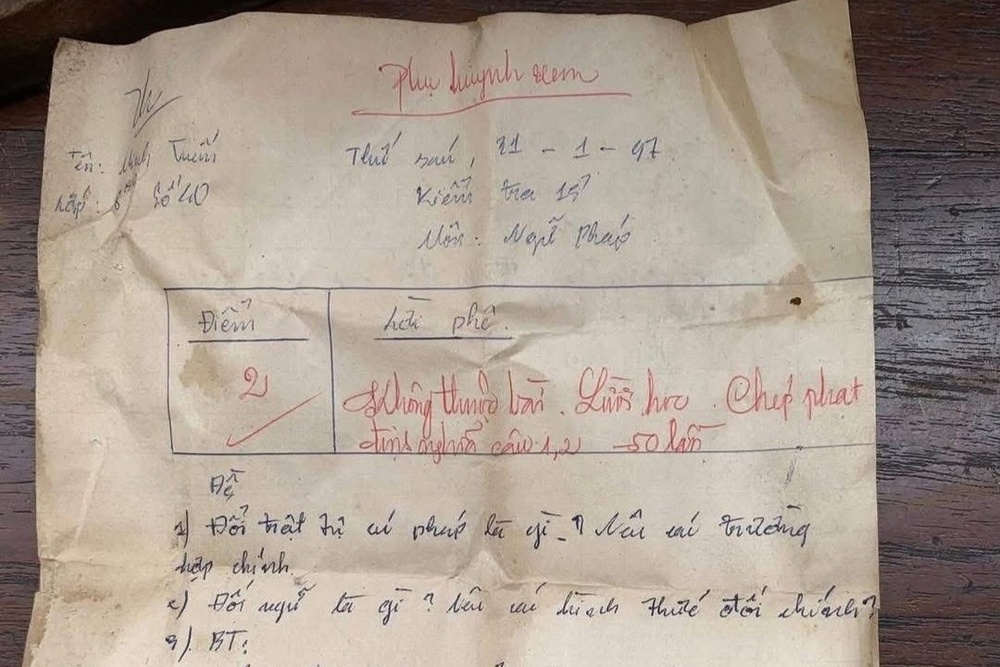 Phụ huynh xem
Tên: Minh Tuấn
Thứ sáu, 31 - 1 - 97
Lớp: 6 Số 40
Kiểm tra 15'
Môn: Ngữ Pháp
Điểm
Lời phê.
2
Không thuộc bài. Lười học. Chép phạt
định nghĩa câu 1,2 50 lần
Đề
1) Đổi trật tự cú pháp là gì? Nêu các trường
hợp chính.
2) Đối ngữ là gì? Nêu các hình thức đối chính?
3). BT: